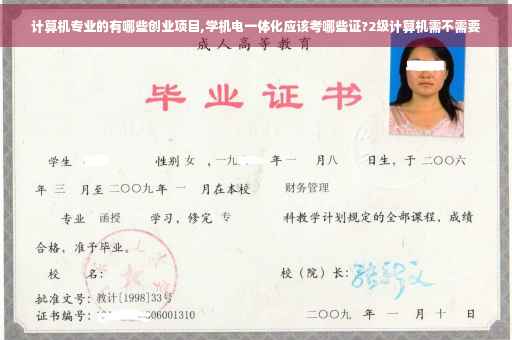 计算机专业的有哪些创业项目,学机电一体化应该考哪些证?2级计算机需不需要
成人高等教育
毕业证书
学生 性别 女 ,一九 年 一 月八 日生,于 二〇〇六
年 三 月至 二〇〇九年 一 月在本校 财务管理
专业 函授 学习,修完 专 科教学计划规定的全部课程,成绩
合格,准予毕业。
校 名: 校(院)长:
批准文号:教计[1998]33号
证书编号: 06001310 二〇〇九 年 一 月 十 日